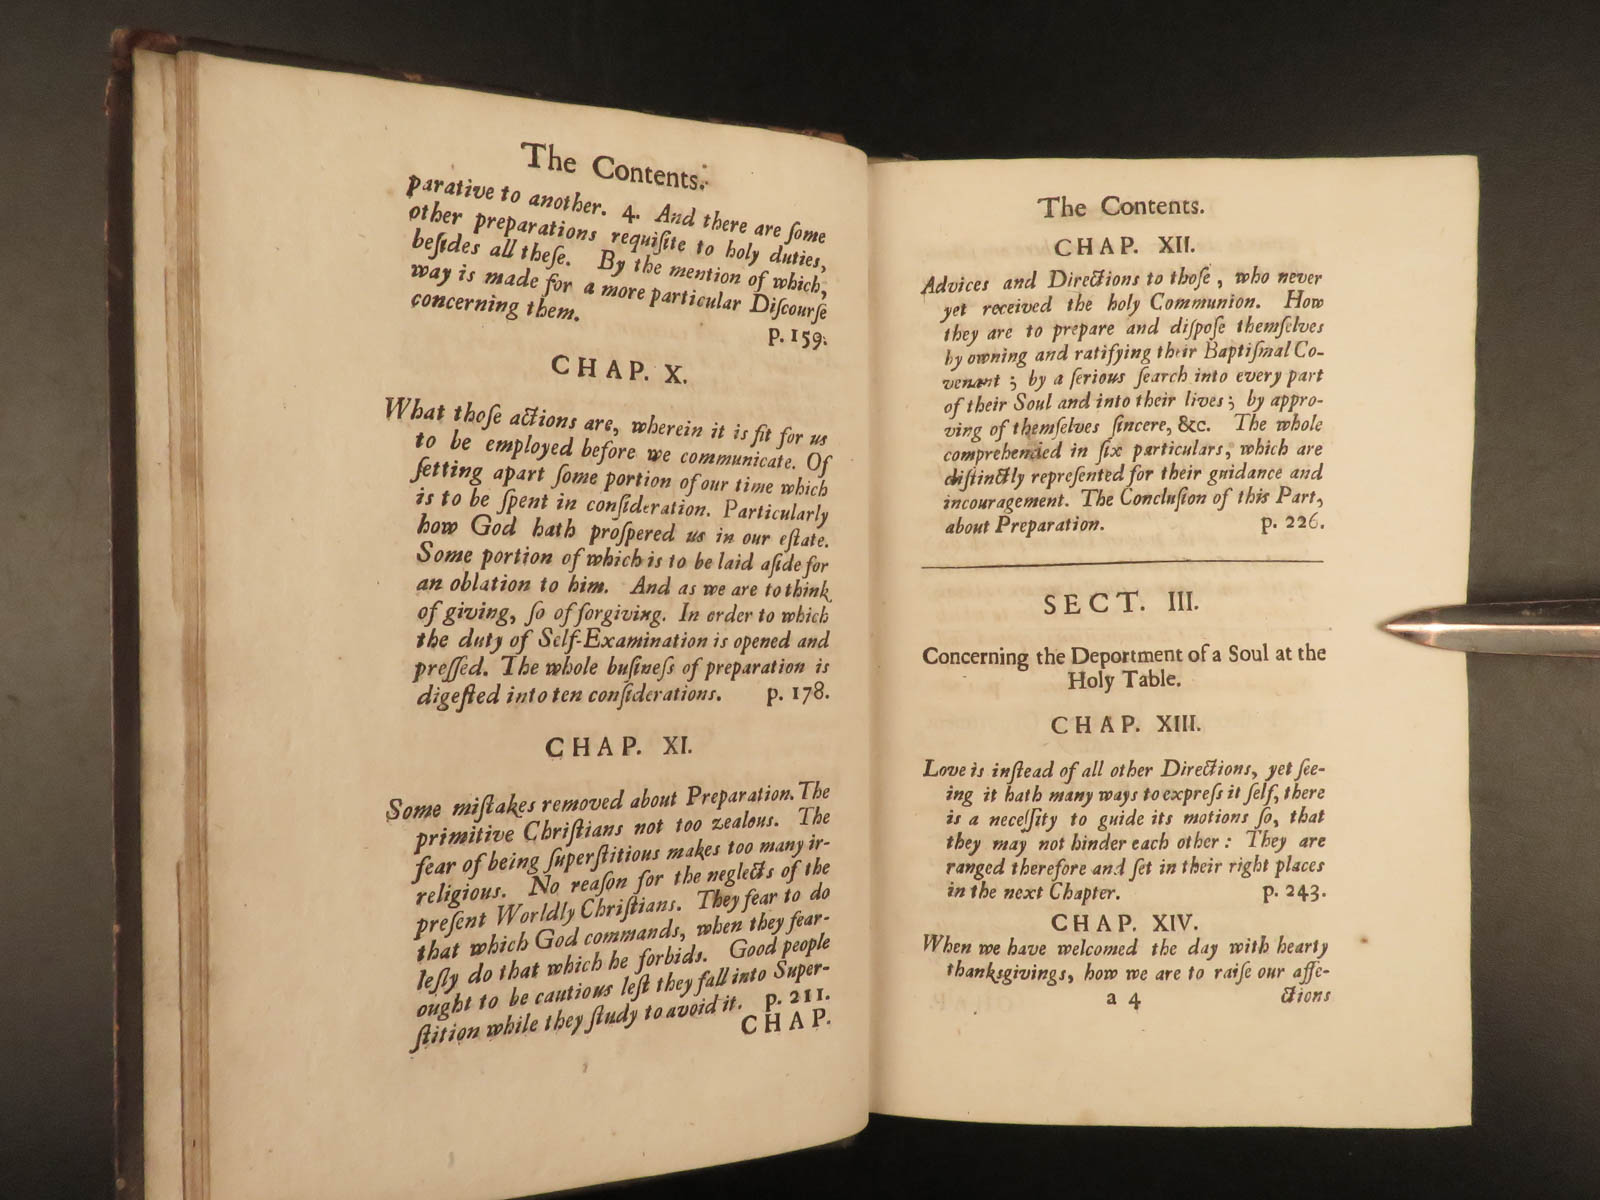 The Contents.
parative to another. 4. And there are ſome
other preparations requiſite to holy duties,
beſides all theſe. By the mention of which,
way is made for a more particular Diſcourſe
concerning them.
p. 159.
CHAP. X.
What thoſe actions are, wherein it is fit for us
to be employed before we communicate. Of
ſetting apart ſome portion of our time which
is to be ſpent in conſideration. Particularly
how God hath proſpered us in our eſtate.
Some portion of which is to be laid aſide for
an oblation to him. And as we are to think
of giving, ſo of forgiving. In order to which
the duty of Self-Examination is opened and
preſſed. The whole buſineſs of preparation is
digeſted into ten conſiderations. p. 178.
CHAP. XI.
Some miſtakes removed about Preparation. The
primitive Chriſtians not too zealous. The
fear of being ſuperſtitious makes too many ir-
religious. No reaſon for the neglects of the
preſent Worldly Chriſtians. They fear to do
that which God commands, when they fear-
leſly do that which he forbids. Good people
ought to be cautious leſt they fall into Super-
ſtition while they ſtudy to avoid it. p. 211.
CHAP.
The Contents.
CHAP. XII.
Advices and Directions to thoſe, who never
yet received the holy Communion. How
they are to prepare and diſpoſe themſelves
by owning and ratifying their Baptiſmal Co-
venant; by a ſerious ſearch into every part
of their Soul and into their lives; by appro-
ving of themſelves ſincere, &c. The whole
comprehended in ſix particulars, which are
diſtinctly repreſented for their guidance and
incouragement. The Concluſion of this Part,
about Preparation. p. 226.
SECT. III.
Concerning the Deportment of a Soul at the
Holy Table.
CHAP. XIII.
Love is inſtead of all other Directions, yet ſee-
ing it hath many ways to expreſs it ſelf, there
is a neceſſity to guide its motions ſo, that
they may not hinder each other: They are
ranged therefore and ſet in their right places
in the next Chapter. p. 243.
CHAP. XIV.
When we have welcomed the day with hearty
thankſgivings, how we are to raiſe our affe-
a 4 ctions